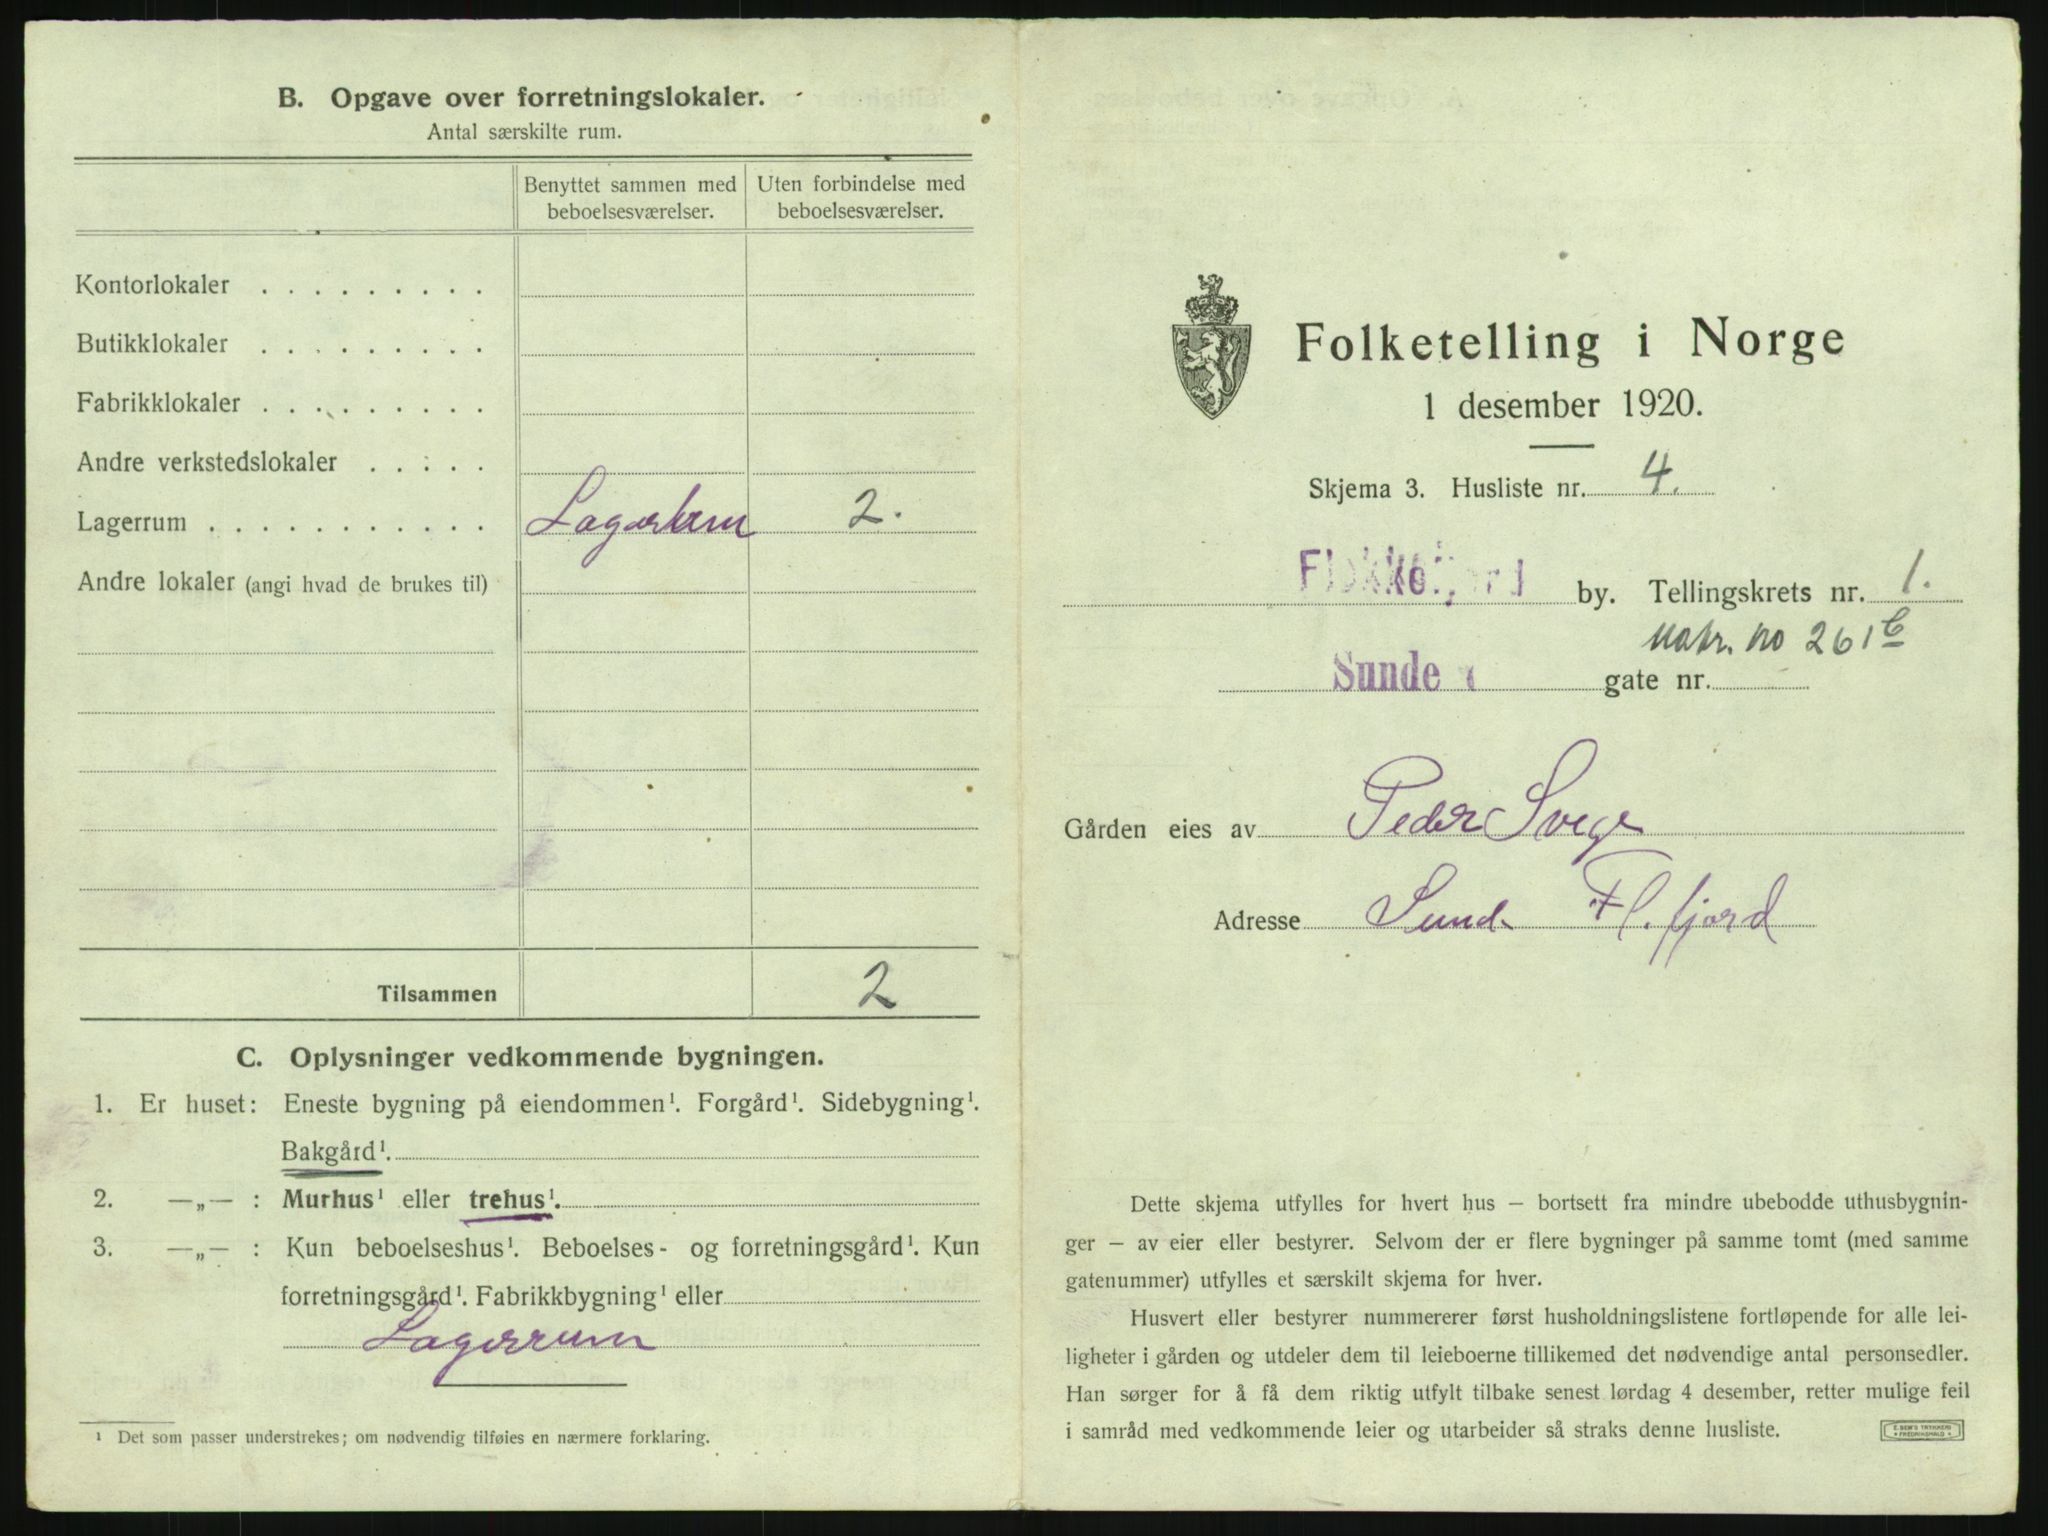 B. Opgave over forretningslokaler.
Antal særskilte rum.
Benyttet sammen med beboelsesværelser.
Uten forbindelse med beboelsesværelser.
Kontorlokaler . . . . . . . . .
Butikklokaler . . . . . . . . .
Fabrikklokaler . . . . . . . . .
Andre verkstedslokaler . . . . .
Lagerrum . . . . . . . . . . . Lagerrum 2.
Andre lokaler (angi hvad de brukes til)
Tilsammen 2
C. Oplysninger vedkommende bygningen.
1. Er huset: Eneste bygning på eiendommen¹. Forgård¹. Sidebygning¹.
Bakgård¹.
2. —„— : Murhus¹ eller trehus¹.
3. —„— : Kun beboelseshus¹. Beboelses- og forretningsgård¹. Kun
forretningsgård¹. Fabrikkbygning¹ eller
Lagerrum
¹ Det som passer understrekes; om nødvendig tilføies en nærmere forklaring.
Folketelling i Norge
1 desember 1920.
Skjema 3. Husliste nr. 4.
Flekkefjord by. Tellingskrets nr. 1.
Matr. no 261 b
Sunde gate nr.
Gården eies av Peder Svege
Adresse Sunde Fl.fjord
Dette skjema utfylles for hvert hus – bortsett fra mindre ubebodde uthusbygnin-
ger – av eier eller bestyrer. Selvom der er flere bygninger på samme tomt (med samme
gatenummer) utfylles et særskilt skjema for hver.
Husvert eller bestyrer nummererer først husholdningslistene fortløpende for alle lei-
ligheter i gården og utdeler dem til leieboerne tillikemed det nødvendige antal personsedler.
Han sørger for å få dem riktig utfylt tilbake senest lørdag 4 desember, retter mulige feil
i samråd med vedkommende leier og utarbeider så straks denne husliste.
E. SEM'S TRYKKERI
FREDRIKSHALD